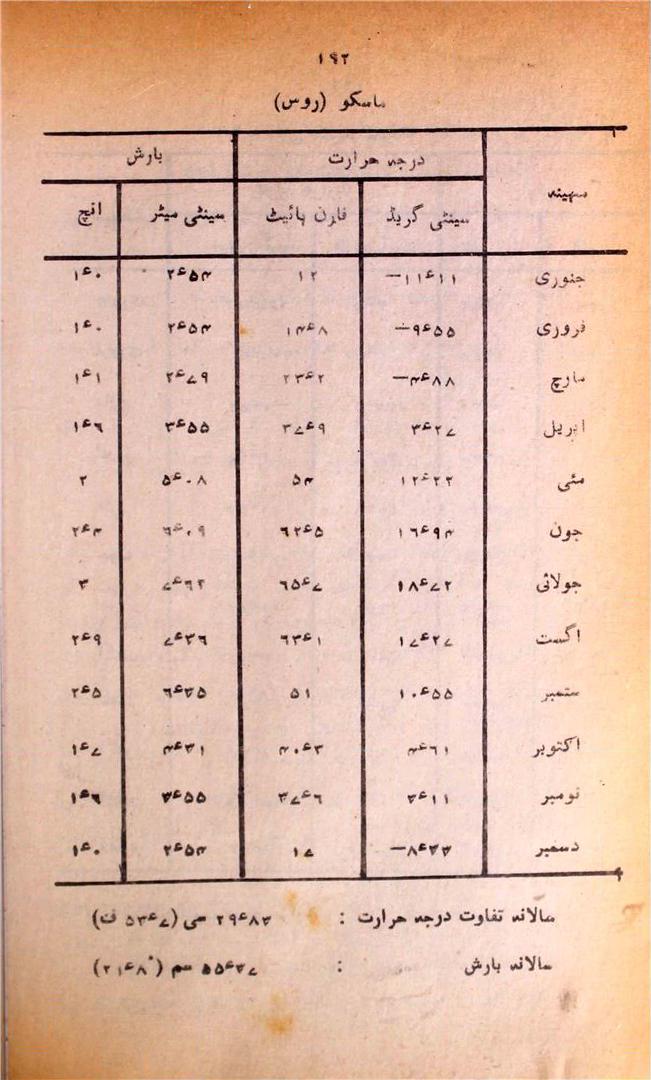 ۱۹۲
ماسکو (روس)
مہینہ درجہ حرارت بارش
سینٹی گریڈ فارن ہائیٹ سینٹی میٹر انچ
جنوری −۱۱ء۱۱ ۱۲ ۲ء۵۴ ۱ء۰
فروری −۹ء۵۵ ۱۴ء۸ ۲ء۵۴ ۱ء۰
مارچ −۴ء۸۸ ۲۳ء۲ ۲ء۷۹ ۱ء۱
اپریل ۳ء۲۷ ۳۷ء۹ ۳ء۵۵ ۱ء۶
مئی ۱۲ء۲۲ ۵۴ ۵ء۰۸ ۲
جون ۱۶ء۹۴ ۶۲ء۵ ۶ء۰۹ ۲ء۴
جولائی ۱۸ء۷۲ ۶۵ء۷ ۷ء۶۲ ۳
اگست ۱۷ء۲۷ ۶۳ء۱ ۷ء۳۶ ۲ء۹
ستمبر ۱۰ء۵۵ ۵۱ ۶ء۳۵ ۲ء۵
اکتوبر ۴ء۶۱ ۴۰ء۳ ۴ء۳۱ ۱ء۷
نومبر ۳ء۱۱ ۳۷ء۶ ۳ء۵۵ ۱ء۶
دسمبر −۸ء۳۳ ۱۷ ۲ء۵۴ ۱ء۰
سالانہ تفاوت درجہ حرارت : ۲۹ء۸۳ سی (۵۳ء۷ ف)
سالانہ بارش : ۵۵ء۳۷ سم (۲۱ء۸")